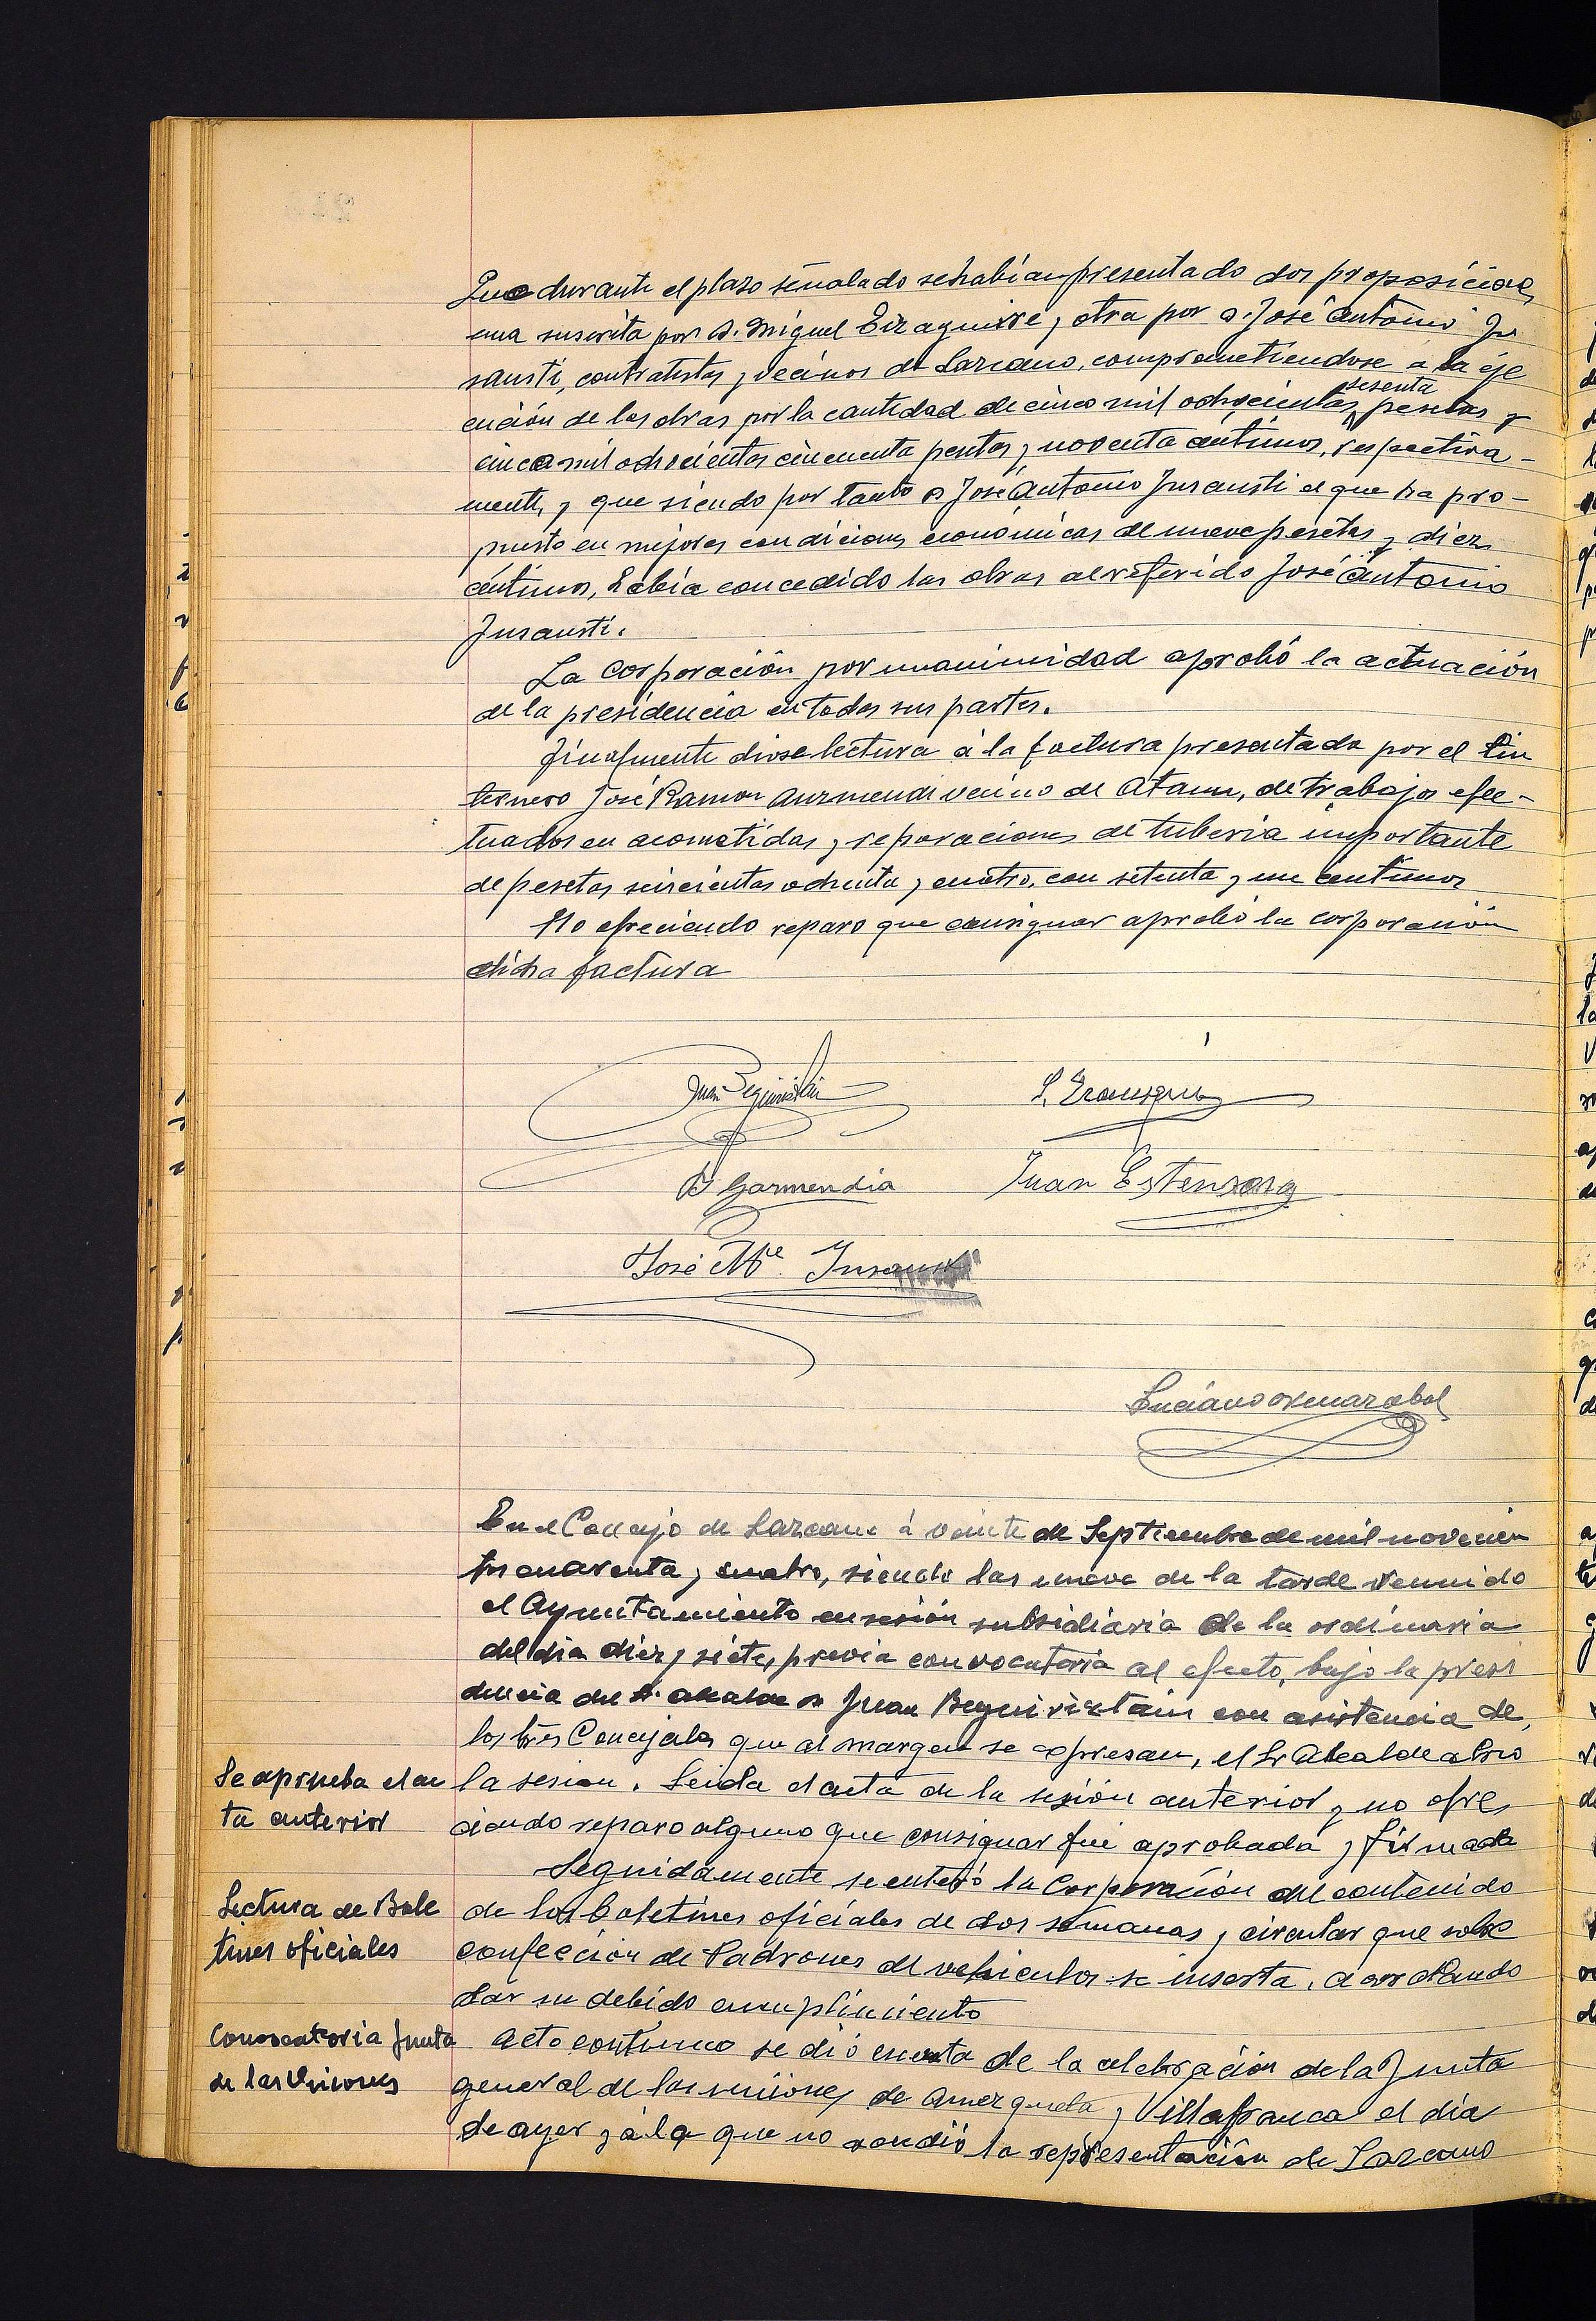 Que durante el plazo señalado se habían presentado dos proposiciones,
una suscrita por D. Miguel Eizaguirre, y otra por D. José Antonio In
sausti, contratistas y vecinos de Lazcano, comprometiendose a la eje
cución de las obras por la cantidad de cinco mil ochocientas sesenta pesetas y
cinco mil ochocientas cincuenta pesetas y noventa céntimos, respectiva-
mente, y que siendo por tanto D José Antonio Insausti el que ha pro-
puesto en mejores condiciones económicas de nueve pesetas y diez
céntimos, había concedido las obras al referido José Antonio
Insausti.
La corporación por unanimidad aprobó la actuación
de la presidencia en todas sus partes.
Finalmente diose lectura a la factura presentada por el lin
ternero José Ramon Aurmendi vecino de Ataun, de trabajos efec-
tuados en acometidas y reparaciones de tuberia importante
de pesetas seiscientas ochenta y cuatro, con setenta y un centimos
No ofreciendo reparo que consignar aprobó la corporación
dicha factura
Juan Beguiristain
Garmendia
Juan Estensoro
José Mª Insausti
Luciano
En el Concejo de Lazcano á veinte de Septiembre de mil novecien
tos cuarenta y cuatro, siendo las nueve de la tarde reunido
el Ayuntamiento en sesión subsidiaria de la ordinaria
del dia diez y siete, previa convocatoria al efecto, bajo la presi
dencia del Sr Alcalde D Juan Beguiristain con asistencia de
los tres Concejales que al margen se expresan, el Sr Alcalde abrio
Se aprueba el ac
ta anterior
la sesion. Leida el acta de la sesión anterior y no ofre
ciendo reparo alguno que consignar fue aprobada y firmada
Seguidamente se enteró la Corporación del contenido
Lectura de Bole
tines oficiales
de los boletines oficiales de dos semanas, y circular que sobre
confeccion de Padrones de vehiculos se inserta, acordando
dar su debido cumplimiento
Convocatoria Junta
de las Uniones
Acto continuo se dió cuenta de la celebración de la Junta
general de las uniones de Amezqueta y Villafranca el día
de ayer y a la que no acudió la representación de Lazcano